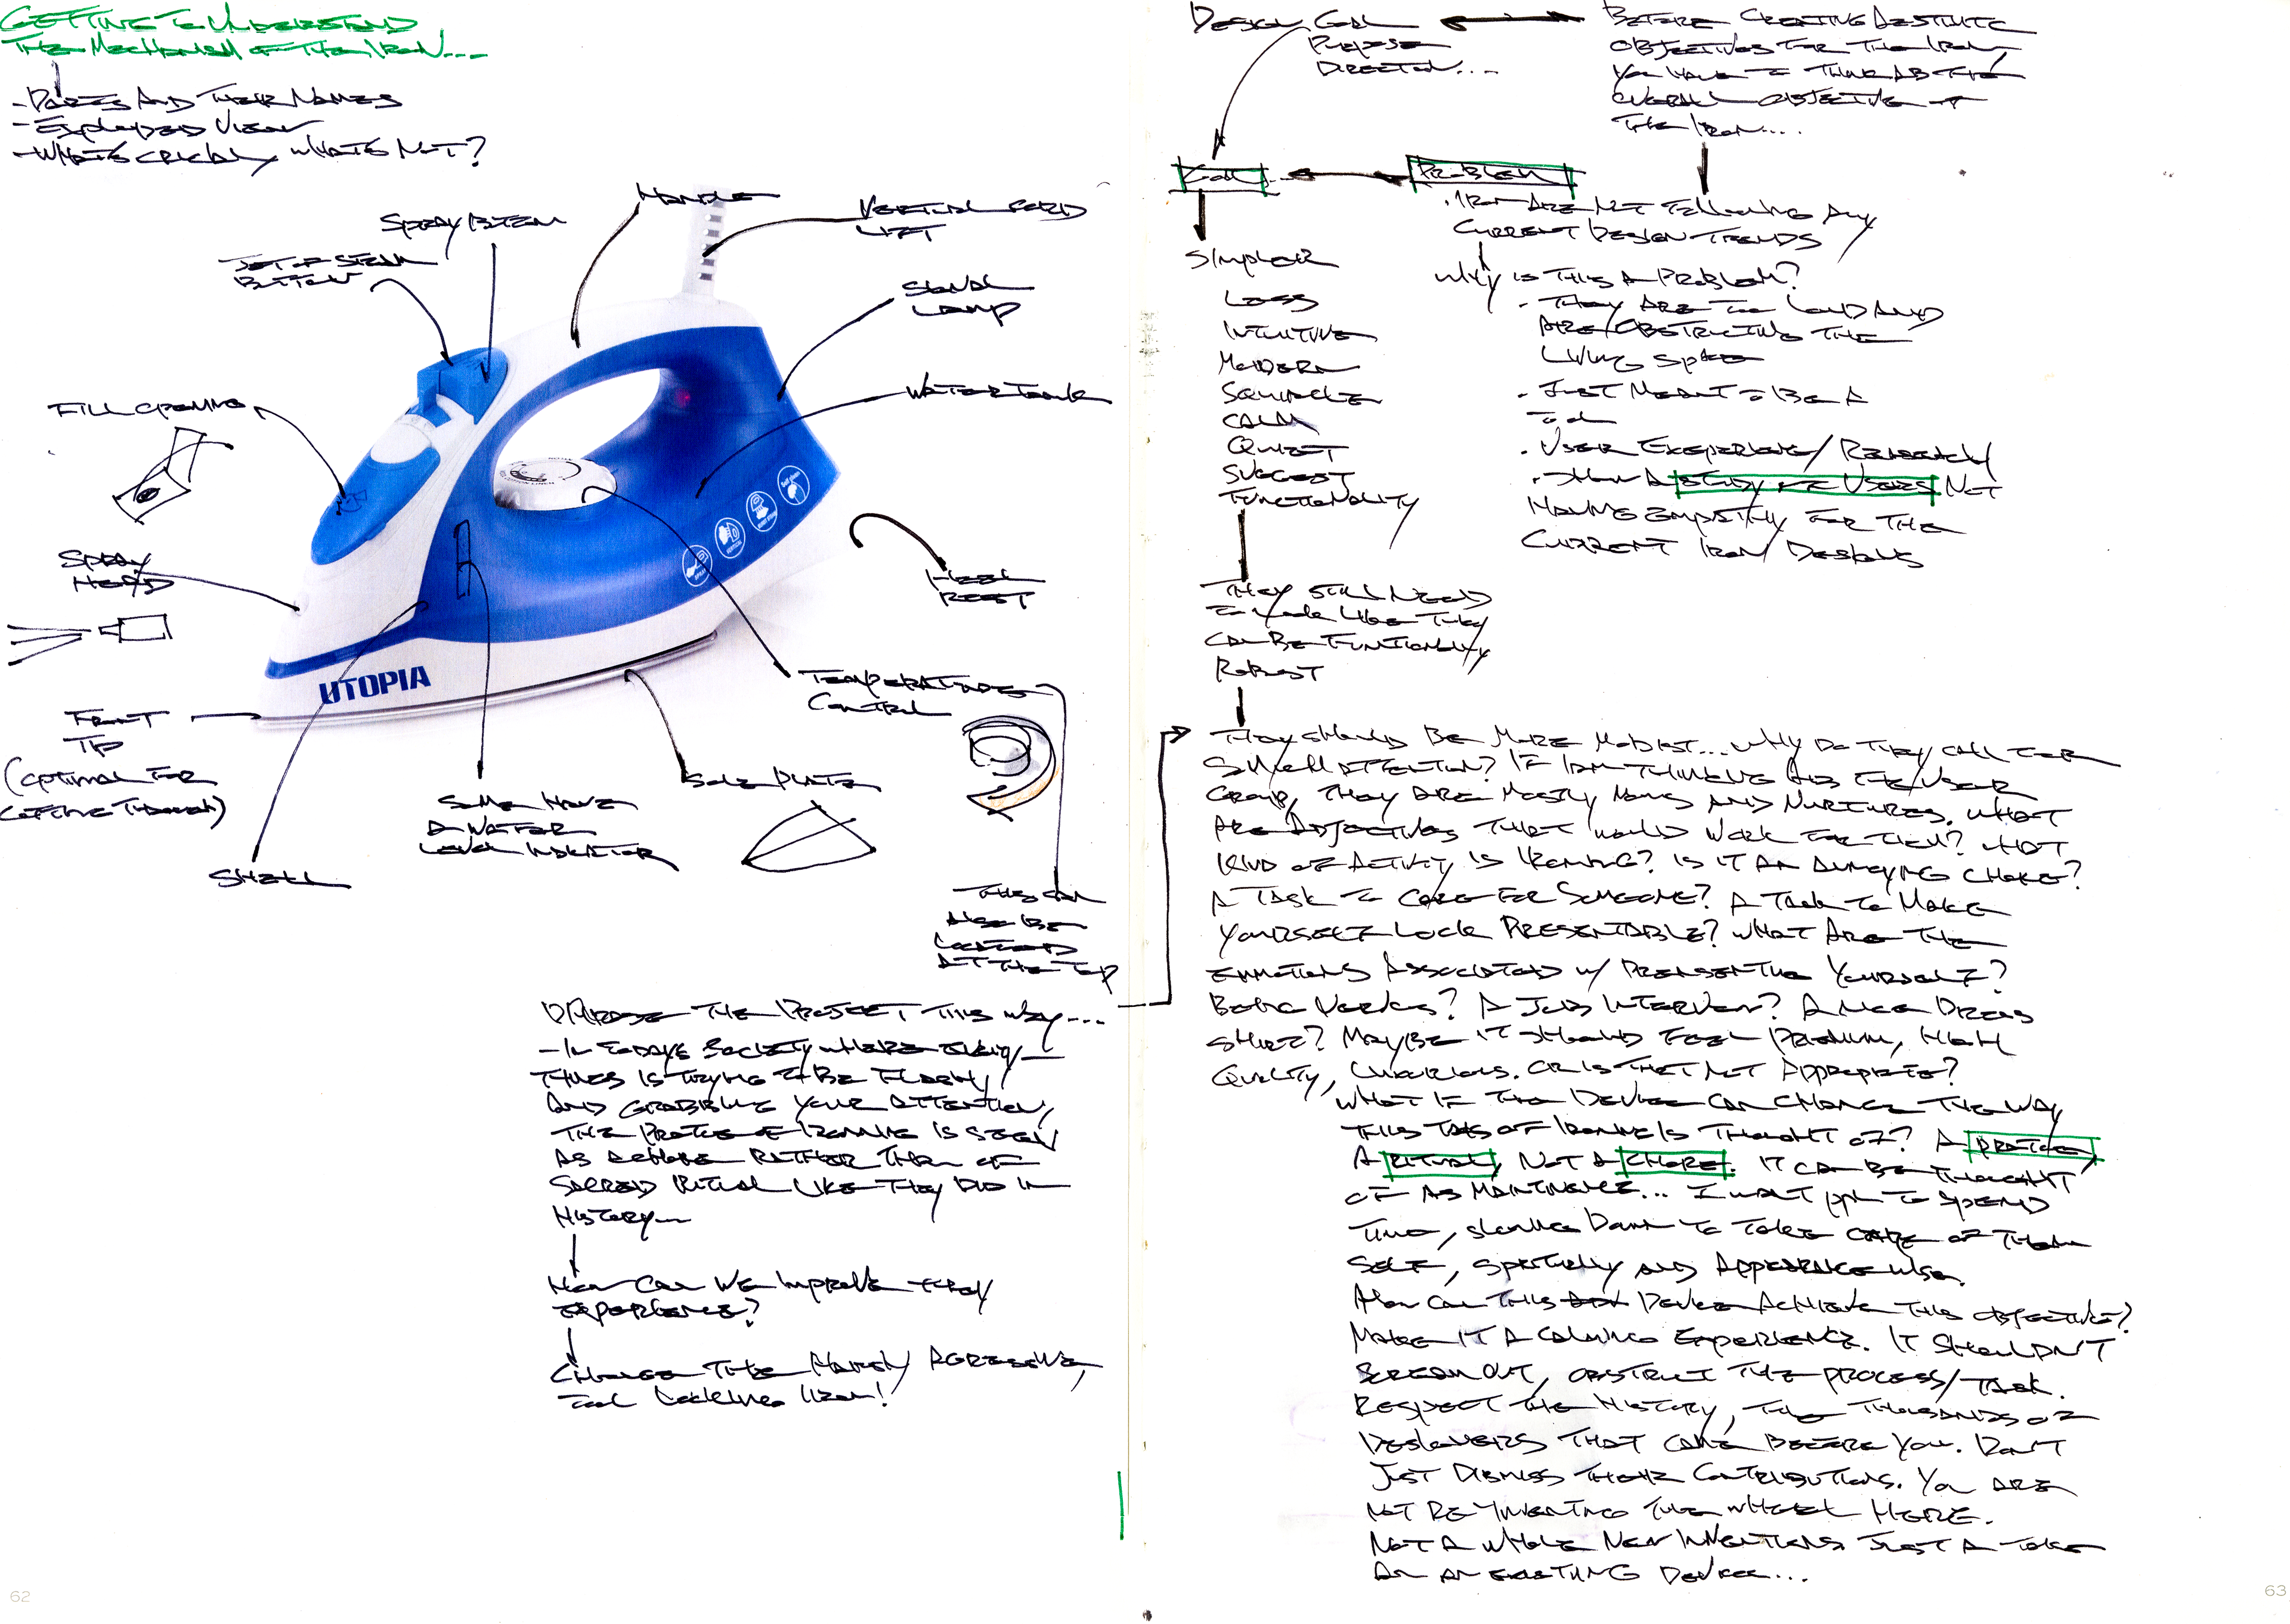 GETTING TO UNDERSTAND
THE MECHANISM OF THE IRON...
- PARTS AND THEIR NAMES
- EXPLODED VIEW
- WHATS CRUCIAL, WHATS NOT?
HANDLE
SPRAY BUTTON
VERTICAL CORD
LIFT
JET OF STEAM
BUTTON
SIGNAL
LAMP
FILL OPENING
WATER TANK
SPRAY
HEAD
HEEL
REST
UTOPIA
TEMPERATURE
CONTROL
FRONT
TIP
(OPTIMAL FOR
GETTING THROUGH)
SOLE PLATE
SOME HAVE
A WATER
LEVEL INDICATOR
SHELL
THIS CAN
ALSO BE
LOCATED
AT THE TOP
PHRASE THE PROJECT THIS WAY...
- IN TODAYS SOCIETY WHERE EVERY
THINGS IS TRYING TO BE FLASHY,
AND GRABBING YOUR ATTENTION,
THE PROCESS OF IRONING IS SEEN
AS A CHORE RATHER THAN OF
SACRED RITUAL LIKE THEY DID IN
HISTORY...
HOW CAN WE IMPROVE THEIR
EXPERIENCE?
CHANGE THE HARSH, AGRESSIVE,
TOOL LOOKING IRON!
62
DESIGN GOAL
PURPOSE
DIRECTION....
BEFORE CREATING AESTHETIC
OBJECTIVES FOR THE IRON,
YOU HAVE TO THINK AB THE
OVERALL OBJECTIVE OF
THE IRON....
GOAL
PROBLEM
. IRON ARE NOT FOLLOWING ANY
CURRENT DESIGN TRENDS
WHY IS THIS A PROBLEM?
. THEY ARE TOO LOUD AND
ARE OBSTRUCTING THE
LIVING SPACE
. JUST MEANT TO BE A
TOOL
. USER EXEPERIENCE/RESEARCH
. SHOW A STUDY OF USERS NOT
HAVING EMPATHY FOR THE
CURRENT IRON DESIGNS
SIMPLER
LESS
INTUITIVE
MODERN
CALM
QUIET
SUGGEST
FUNCTIONALITY
THEY STILL NEED
TO LOOK LIKE THEY
CAN BE FUNCTIONALLY
ROBUST
THEY SHOULD BE MORE MODEST... WHY DO THEY CALL FOR
SO MUCH ATTENTION? IF I AM THINKING AB THE USER
GROUP, THEY ARE MOSTLY MOMS AND NURTURES. WHAT
ARE ADJECTIVES THAT WOULD WORK FOR THEM? WHAT
KIND OF ACTIVITY IS IRONING? IS IT AN ANNOYING CHORE?
A TASK TO CARE FOR SOMEONE? A TASK TO MAKE
YOURSELF LOOK PRESENTABLE? WHAT ARE THE
EMMOTIONS ASSOCIATED W/ PRENSENTING YOURSELF?
BEING NERVOUS? A JOB INTERVIEW? A NICE DRESS
SHIRT? MAYBE IT SHOULD FEEL PREMIUM, HIGH
QUALITY, LUXURIOUS. OR IS THAT NOT APPROPRIATE?
WHAT IF THE DEVICE CAN CHANGE THE WAY
THIS TASK OF IRONING IS THOUGHT OF? A PRACTICE,
A RITUAL, NOT A CHORE. IT CAN BE THOUGHT
OF AS MAINTINENCE... I WANT PPL TO SPEND
TIME, SLOWING DOWN TO TAKE CARE OF THEM
SELF, SPIRTUALLY AND APPEARANCE WISE.
HOW CAN THIS DEVICE ACHIEVE THIS OBJECTIVE?
MAKE IT A CALMING EXPERIENCE. IT SHOULDN'T
SCREAM OUT, OBSTRUCT THE PROCESS/TASK.
RESPECT THE HISTORY, THE THOUSANDS OF
DESIGNERS THAT CAME BEFORE YOU. DON'T
JUST DISMISS THEIR CONTRIBUTIONS. YOU ARE
NOT RE-INVENTING THE WHEEL HERE.
NOT A WHOLE NEW INVENTIONS JUST A TAKE
ON AN EXISTING DEVICE...
63